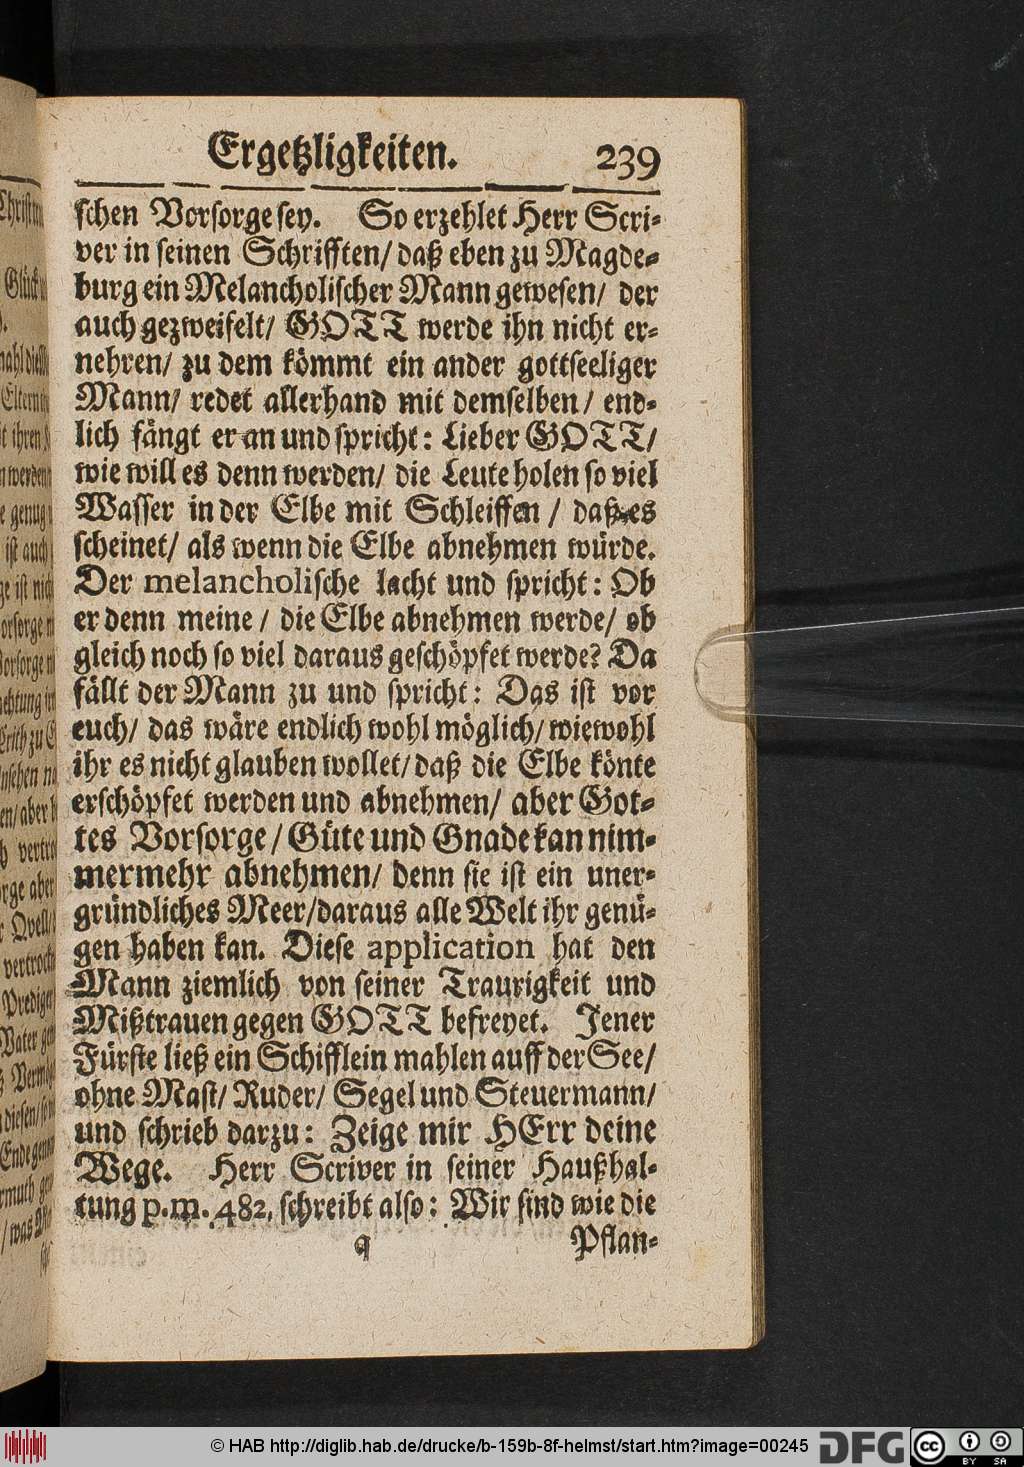 Ergetzligkeiten. 239
schen Vorsorge sey. So erzehlet Herr Scri-
ver in seinen Schrifften/ daß eben zu Magde-
burg ein Melancholischer Mann gewesen/ der
auch gezweifelt/ GOTT werde ihn nicht er-
nehren/ zu dem kömmt ein ander gottseeliger
Mann/ redet allerhand mit demselben/ end-
lich fängt er an und spricht: Lieber GOTT/
wie will es denn werden/ die Leute holen so viel
Wasser in der Elbe mit Schleiffen / daß es
scheinet/ als wenn die Elbe abnehmen würde.
Der melancholische lacht und spricht: Ob
er denn meine / die Elbe abnehmen werde/ ob
gleich noch so viel daraus geschöpfet werde? Da
fällt der Mann zu und spricht: Das ist vor
euch/ das wäre endlich wohl möglich/ wiewohl
ihr es nicht glauben wollet/ daß die Elbe könte
erschöpfet werden und abnehmen/ aber Got-
tes Vorsorge / Güte und Gnade kan nim-
mermehr abnehmen/ denn sie ist ein uner-
gründliches Meer/daraus alle Welt ihr genü-
gen haben kan. Diese application hat den
Mann ziemlich von seiner Traurigkeit und
Mißtrauen gegen GOTT befreyet. Jener
Fürste ließ ein Schifflein mahlen auff der See/
ohne Mast/ Ruder/ Segel und Steuermann/
und schrieb darzu: Zeige mir HErr deine
Wege. Herr Scriver in seiner Haußhal-
tung p.m. 482. schreibt also: Wir sind wie die
q Pflan-
© HAB http://diglib.hab.de/drucke/b-159b-8f-helmst/start.htm?image=00245 DFG cc BY SA